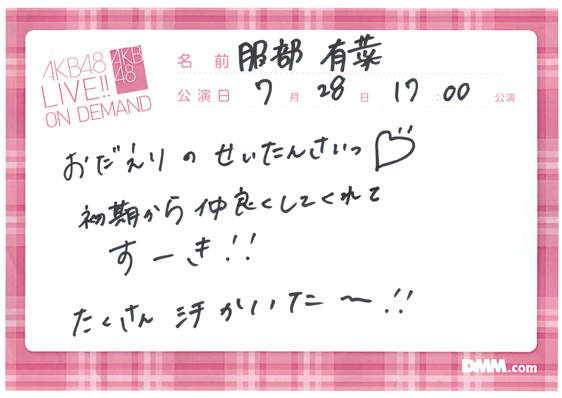 AKB48
LIVE!!
ON DEMAND
AKB
48
名前 服部 有菜
公演日 7月 28日 17:00 公演
おだえりの せいたんさいっ♡
初期から仲良くしてくれて
すーき!!
たくさん 汗かいた〜!!
DMM.com